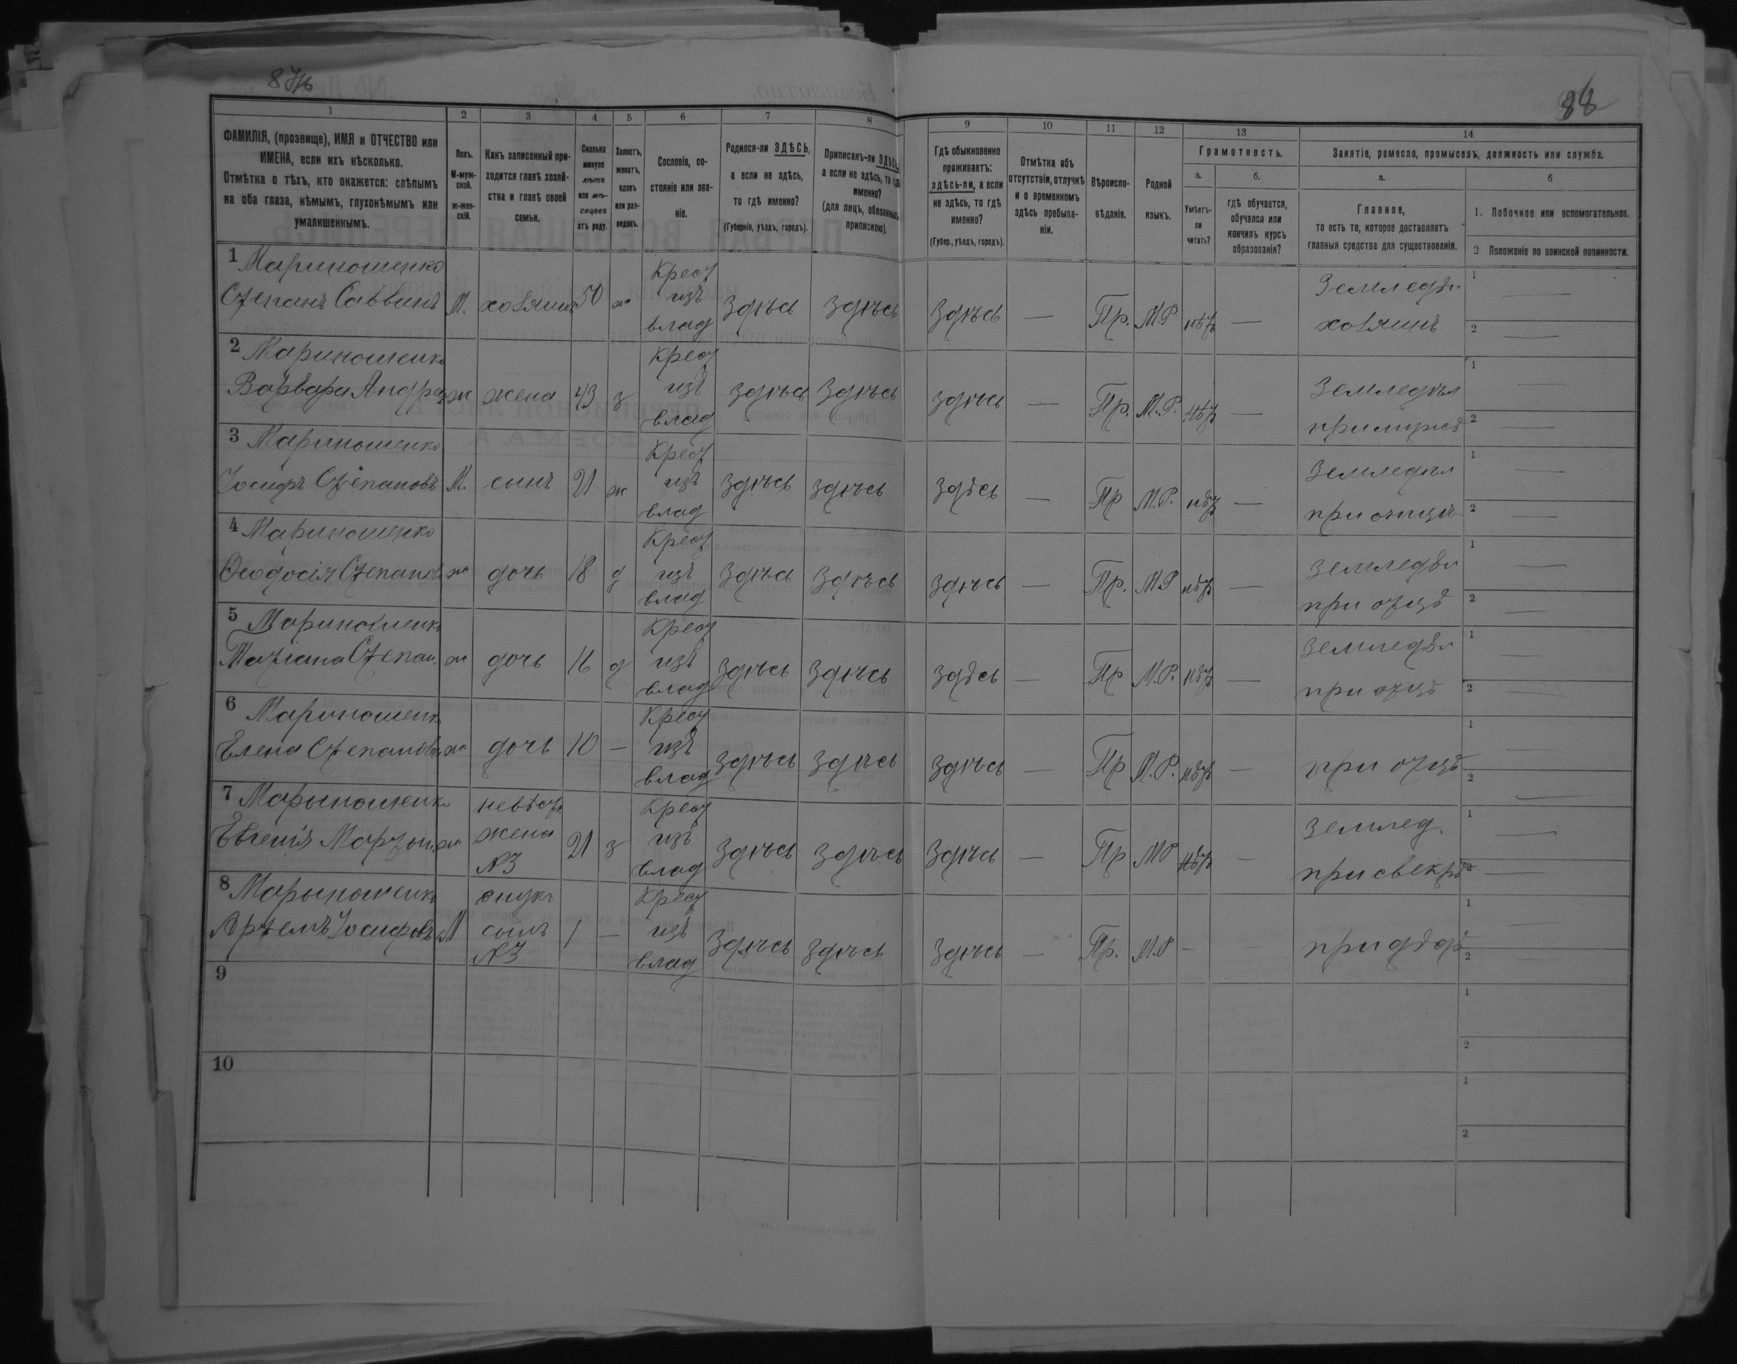 87об
88
1 2 3 4 5 6 7 8 9 10 11 12 13 14
ФАМИЛІЯ, (прозвище), ИМЯ и ОТЧЕСТВО или ИМЕНА, если ихъ нѣсколько.
Отмѣтка о тѣхъ, кто окажется: слѣпымъ на оба глаза, нѣмымъ, глухонѣмымъ или умалишеннымъ.
Полъ. М-мужской. ж-женскій.
Какъ записанный приходится главѣ хозяйства и главѣ своей семьи.
Сколько минуло лѣтъ или мѣсяцевъ отъ роду.
Холостъ, женатъ, вдовъ или разведенъ.
Сословіе, состояніе или званіе.
Родился-ли ЗДѢСЬ, а если не здѣсь, то гдѣ именно?
(Губернія, уѣздъ, городъ).
Приписанъ-ли ЗДѢСЬ, а если не здѣсь, то гдѣ именно?
(для лицъ, обязанныхъ припискою).
Гдѣ обыкновенно проживаетъ: здѣсь-ли, а если не здѣсь, то гдѣ именно?
(Губер., уѣздъ, городъ).
Отмѣтка объ отсутствіи, отлучкѣ и о временномъ здѣсь пребываніи.
Вѣроисповѣданіе.
Родной языкъ.
Грамотность.
а. Умѣетъ-ли читать?
б. гдѣ обучается, обучался или кончилъ курсъ образованія?
Занятіе, ремесло, промыселъ, должность или служба.
а. Главное, то есть то, которое доставляетъ главныя средства для существованія.
б
1. Побочное или вспомогательное.
2 Положеніе по воинской повинности.
1 Мариношенко Степанъ Саввинъ М. хозяинъ 50 ж Крест изъ влад Здѣсь Здѣсь Здѣсь — Пр. М.Р нѣтъ — Земледѣл хозяинъ 1 — 2 —
2 Мариношенко Варвара Андр ж жена 43 з Крест изъ влад Здѣсь Здѣсь Здѣсь — Пр. М.Р. нѣтъ — Земледѣл при мужѣ 1 — 2 —
3 Мариношенко Іосифъ Степановъ М. сынъ 21 ж Крест изъ влад Здѣсь Здѣсь Здѣсь — Пр М.Р. нѣтъ — Земледѣл при отцѣ 1 — 2 —
4 Мариношенко Ѳеодосія Степанов ж дочь 18 д Крест изъ влад Здѣсь Здѣсь Здѣсь — Пр. М.Р нѣтъ — Земледѣл при отцѣ 1 — 2 —
5 Мариношенк Татіана Степан. ж дочь 16 д Крест изъ влад Здѣсь Здѣсь Здѣсь — Пр М.Р. нѣтъ — Земледѣл при отцѣ 1 — 2 —
6 Мариношенк Елена Степанова ж дочь 10 — Крест изъ влад Здѣсь Здѣсь Здѣсь — Пр М.Р. нѣтъ — при отцѣ 1 — 2 —
7 Марыношенко Евгенія ж невѣст жена №3 21 з Крест изъ влад Здѣсь Здѣсь Здѣсь — Пр МР нѣтъ — Землед. при свекрѣ 1 — 2 —
8 Марыношенко Артемъ Іосифовъ М сынъ №3 1 — Крест изъ влад Здѣсь Здѣсь Здѣсь — Пр. М.Р — при дѣдѣ 1 — 2 —
9 1 2
10 1 2